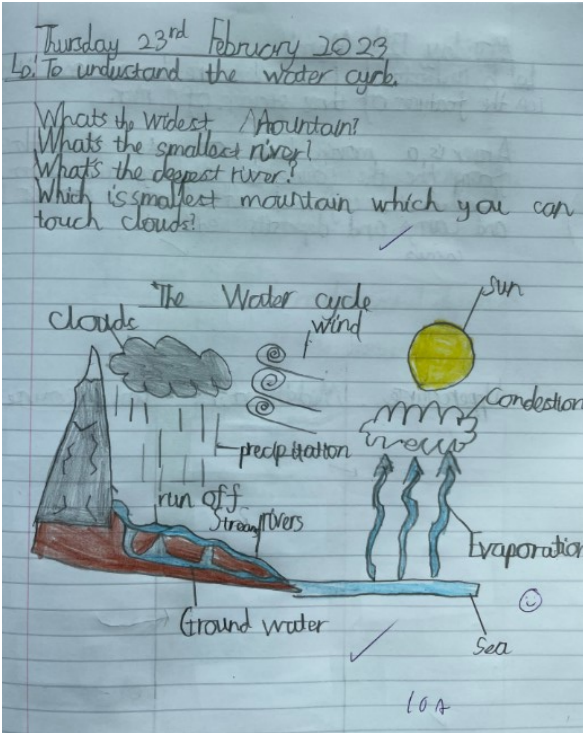 Thursday 23rd February 2023
Lo: To understand the water cycle.
Whats the widest Mountain?
What's the smallest river?
What's the deepest river?
Which is smallest mountain which you can
touch clouds?
The Water cycle
Sun
clouds
wind
Condestion
precipitation
run off
Stream/rivers
Evaporation
Ground water
Sea